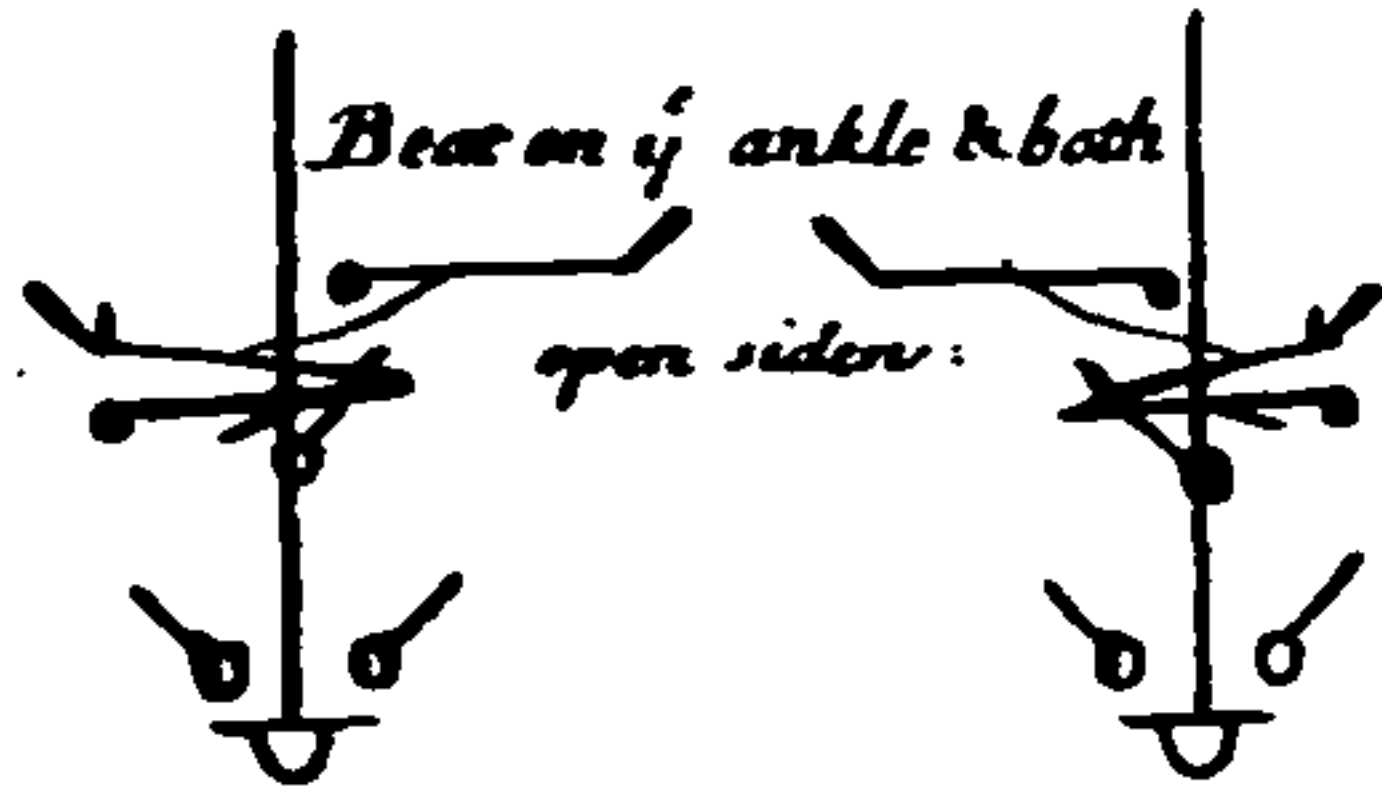 Beat on yͤ ankle & both
open siden: